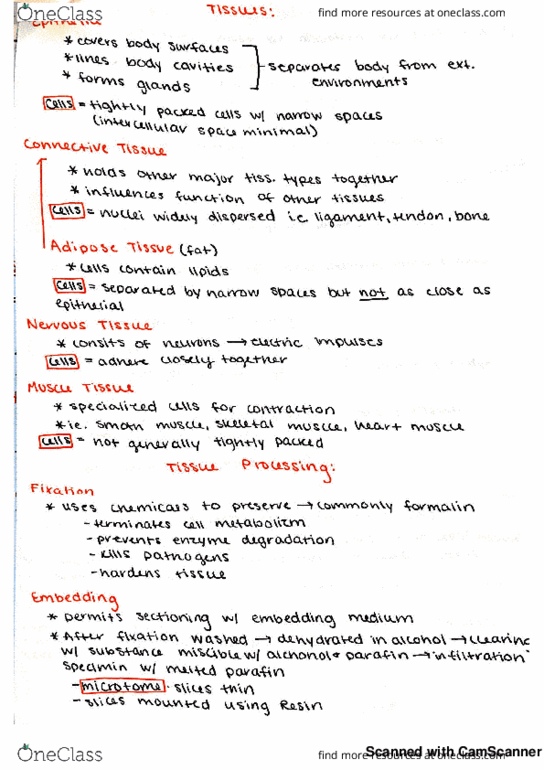 OneClass
Tissues:
find more resources at oneclass.com
* covers body surfaces
* lines body cavities
* forms glands
separates body from ext.
environments
cells = tightly packed cells w/ narrow spaces
(intercellular space minimal)
Connective Tissue
* holds other major tiss. types together
* influences function of other tissues
cells = nuclei widely dispersed i.e. ligament, tendon, bone
Adipose Tissue (fat)
* cells contain lipids
cells = separated by narrow spaces but not as close as
epithelial
Nervous Tissue
* consits of neurons → electric impulses
cells = adhere closely together
Muscle Tissue
* specialized cells for contraction
* ie. smooth muscle, skeletal muscle, heart muscle
cells = not generally tightly packed
Tissue Processing:
Fixation
* uses chemicals to preserve → commonly formalin
- terminates cell metabolism
- prevents enzyme degradation
- kills pathogens
- hardens tissue
Embedding
* permits sectioning w/ embedding medium
* After fixation washed → dehydrated in alcohol → clearing
w/ substance miscible w/ alchohol + parafin → infiltration
specimin w/ melted parafin
- microtome · slices thin
- slices mounted using Resin
OneClass
find more resources at oneclass.com
Scanned with CamScanner